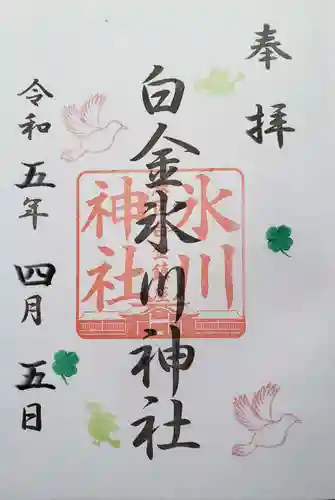 奉拝
白金氷川神社
氷川
神社
令和五年四月五日